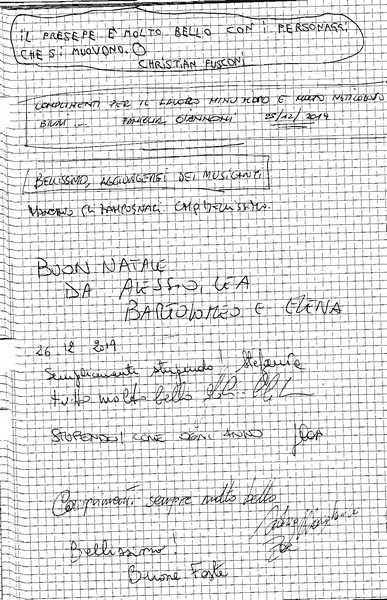 IL PRESEPE É MOLTO BELLO CON I PERSONAGGI
CHE SI MUOVONO.
CHRISTIAN FUSCONI
COMPLIMENTI PER IL LAVORO MINUZIOSO E MOLTO METICOLOSO
BRAVI ... FAMIGLIA GIANNONI 25/12/2019
BELLISSIMO, AGGIUNGEREI DEI MUSICANTI
MANCANO GLI ZAMPOGNARI.
BUON NATALE
DA ALESSIO, LEA
BARTOLOMEO E ELENA
26 12 2019
Semplicemente stupendo! Stefania
tutto molto bello
STUPENDO! COME OGNI ANNO
Complimenti sempre molto bello
Bellissimo!
Buone Feste